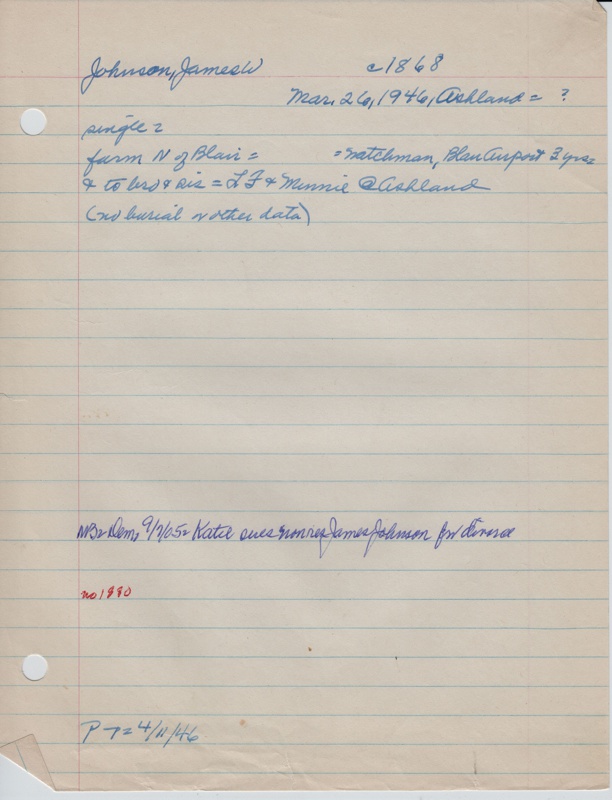 Johnson, James W c1868
Mar. 26, 1946, Ashland = ?
single =
farm N of Blair = = watchman, Blair Airport 3 yrs =
& to bro & sis = L F & Minnie @ Ashland
(no burial or other data)
NB = Dem, 9/7/05 = Katie sues nonres James Johnson for divorce
no 1880
P T = 4/11/46